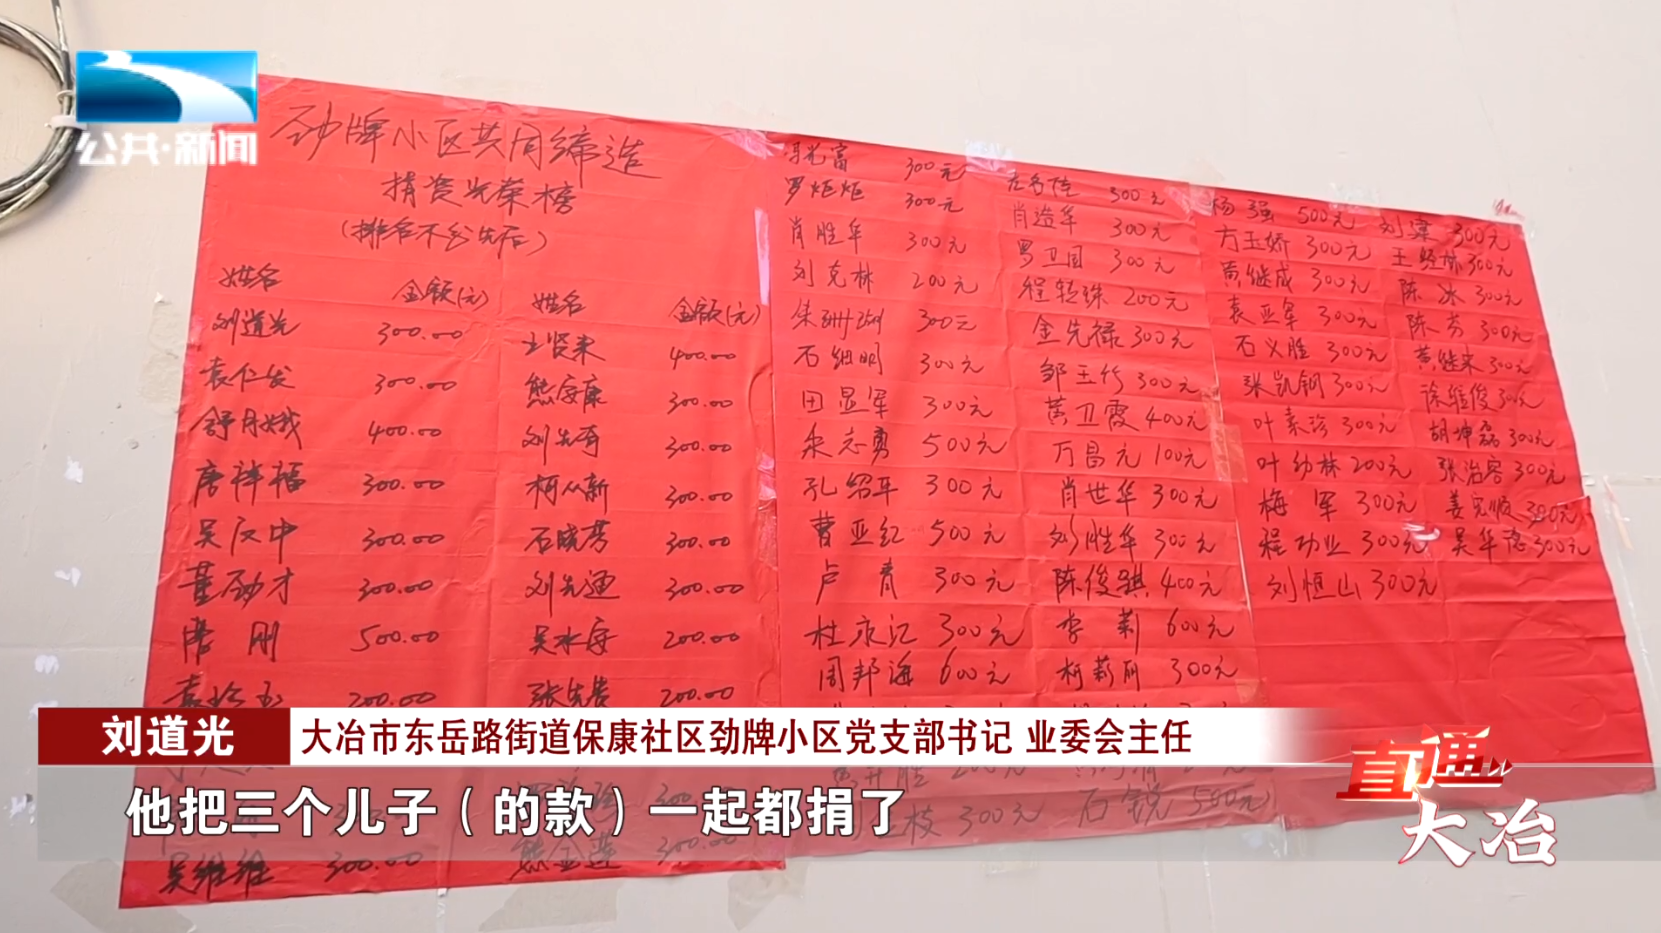 公共·新闻
劲牌小区共同缔造
捐资光荣榜
(排名不分先后)
姓名 金额(元) 姓名 金额(元)
刘道光 300.00
袁仁发 300.00
舒月娥 400.00
唐祥福 300.00
吴汉中 300.00
董劲才 300.00
唐刚 500.00
200.00
吴维维 300.00
王贤来 400.00
熊应康 300.00
刘先奇 300.00
柯从新 300.00
石晓芳 300.00
刘先通 300.00
吴水安 200.00
张先贵 200.00
熊金莲 300.00
冯光富 300元
罗炬炬 300元
肖胜年 300元
刘克林 200元
朱 300元
石细明 300元
田显军 300元
朱志勇 500元
孔绍平 300元
曹亚红 500元
卢青 300元
杜永江 300元
周邦海 600元
枝 300元
300元
肖造年 300元
罗卫国 300元
程轻珠 200元
金先禄 300元
邹玉竹 300元
黄卫霞 400元
万昌元 100元
肖世华 300元
刘胜华 300元
陈俊骐 400元
李莉 600元
柯莉丽 300元
石锐 500元
杨强 500元
方玉娇 300元
黄继成 300元
袁亚军 300元
石义胜 300元
张凯钢 300元
叶素珍 300元
叶幼林 200元
梅军 300元
程功业 300元
刘恒山 300元
刘 300元
王 300元
陈冰 300元
陈芳 300元
黄继来 300元
徐维俊 300元
胡坤磊 300元
张治容 300元
姜宪顺 300元
吴华 300元
刘道光 大冶市东岳路街道保康社区劲牌小区党支部书记 业委会主任
他把三个儿子（的款）一起都捐了
直通大冶